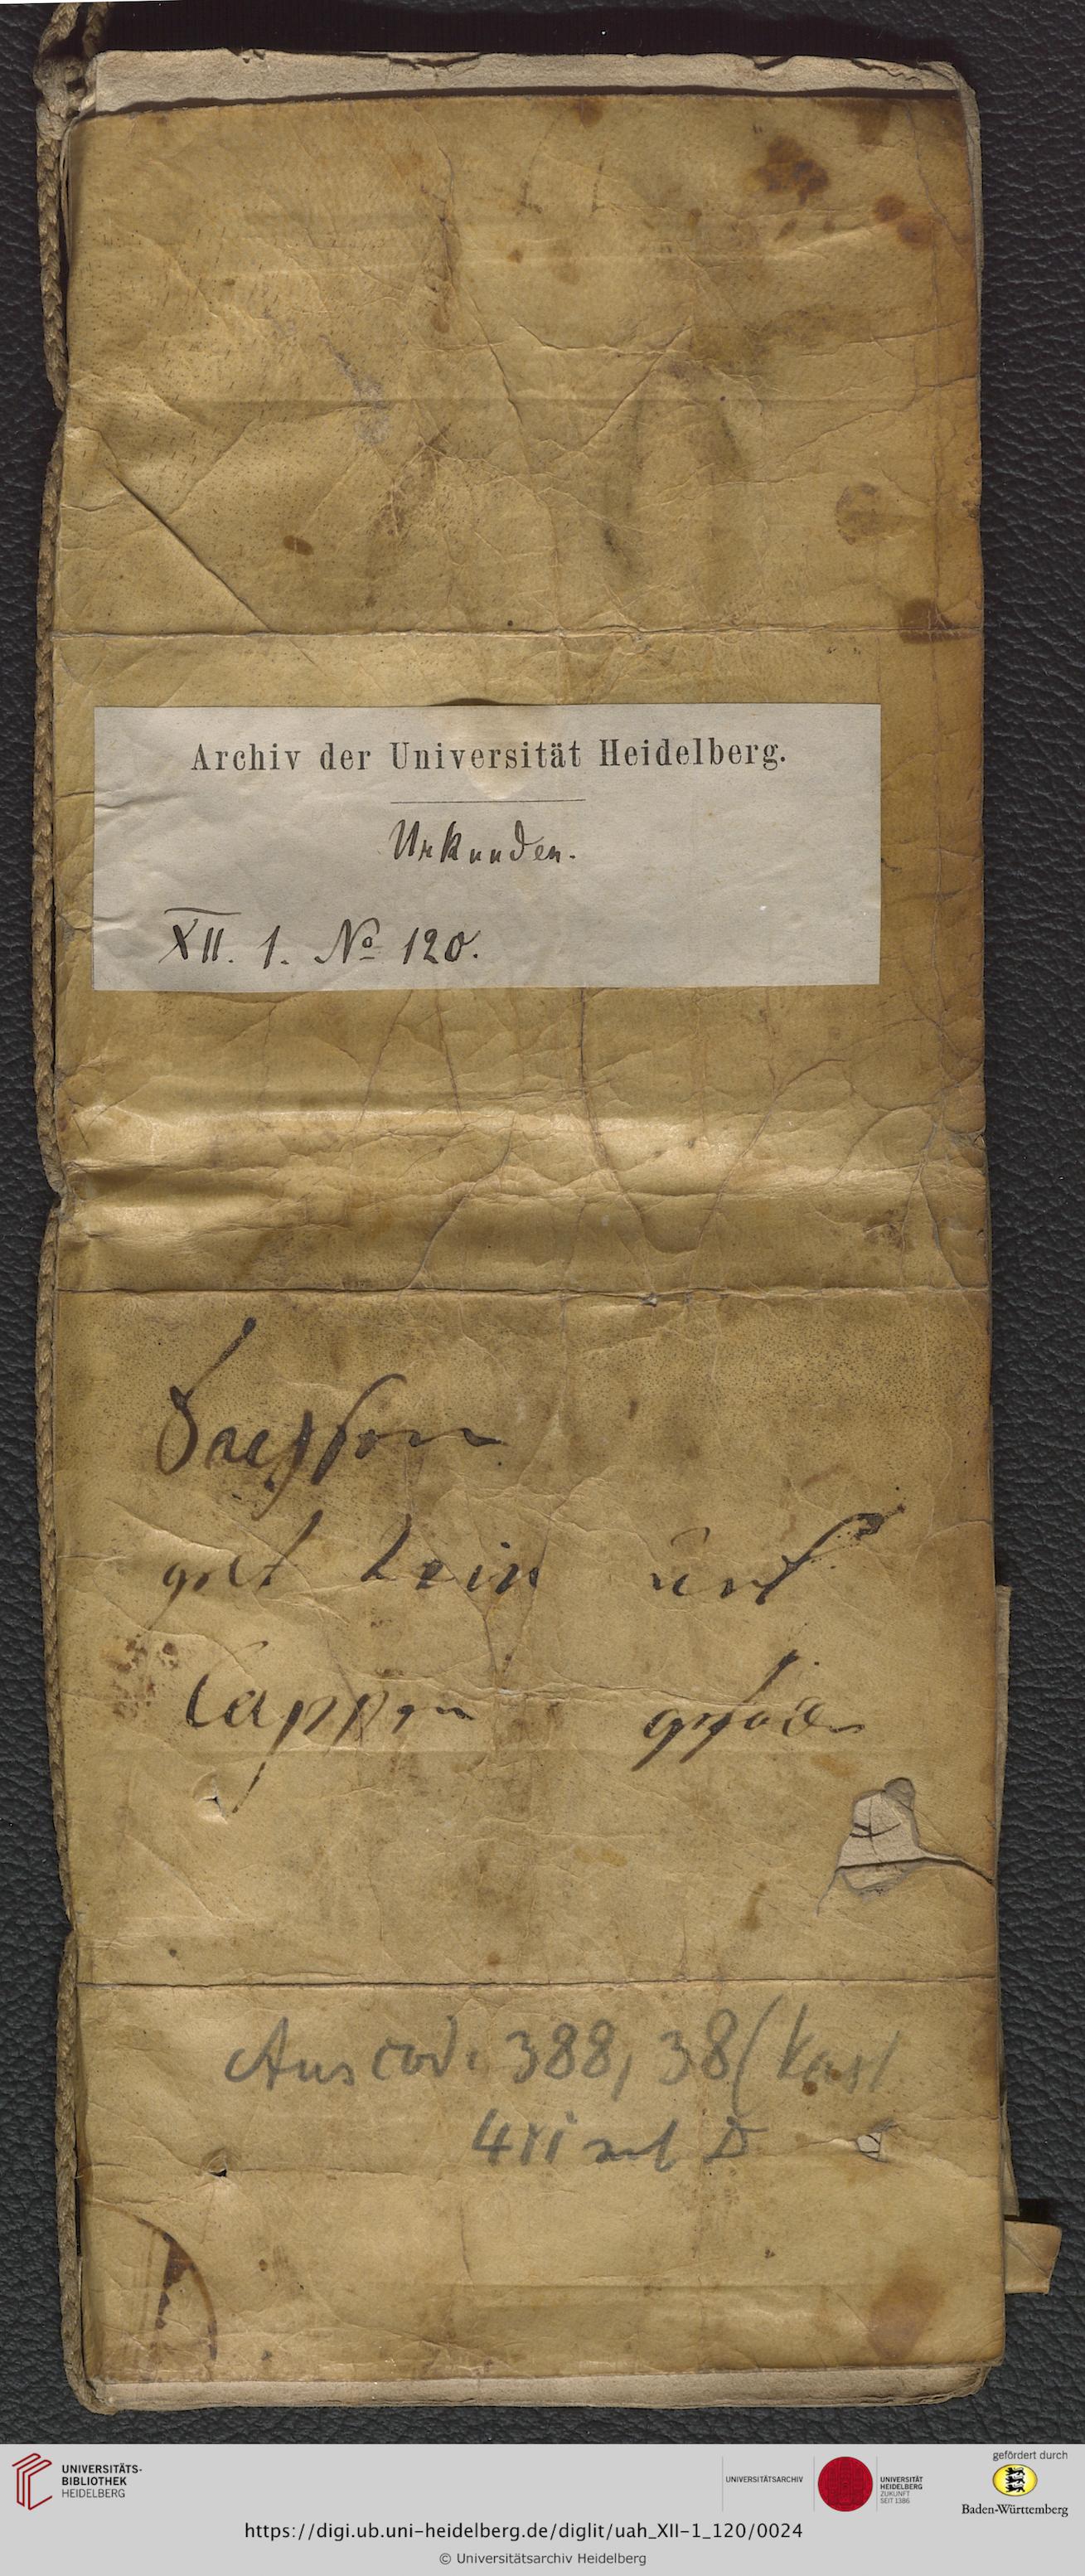 Archiv der Universität Heidelberg.
Urkunden.
XII. 1. No 120.
Cappen
Aus cod. 388, 38 (
UNIVERSITÄTS-
BIBLIOTHEK
HEIDELBERG
UNIVERSITÄTSARCHIV
UNIVERSITÄT
HEIDELBERG
ZUKUNFT
SEIT 1386
gefördert durch
Baden-Württemberg
https://digi.ub.uni-heidelberg.de/diglit/uah_XII-1_120/0024
© Universitätsarchiv Heidelberg